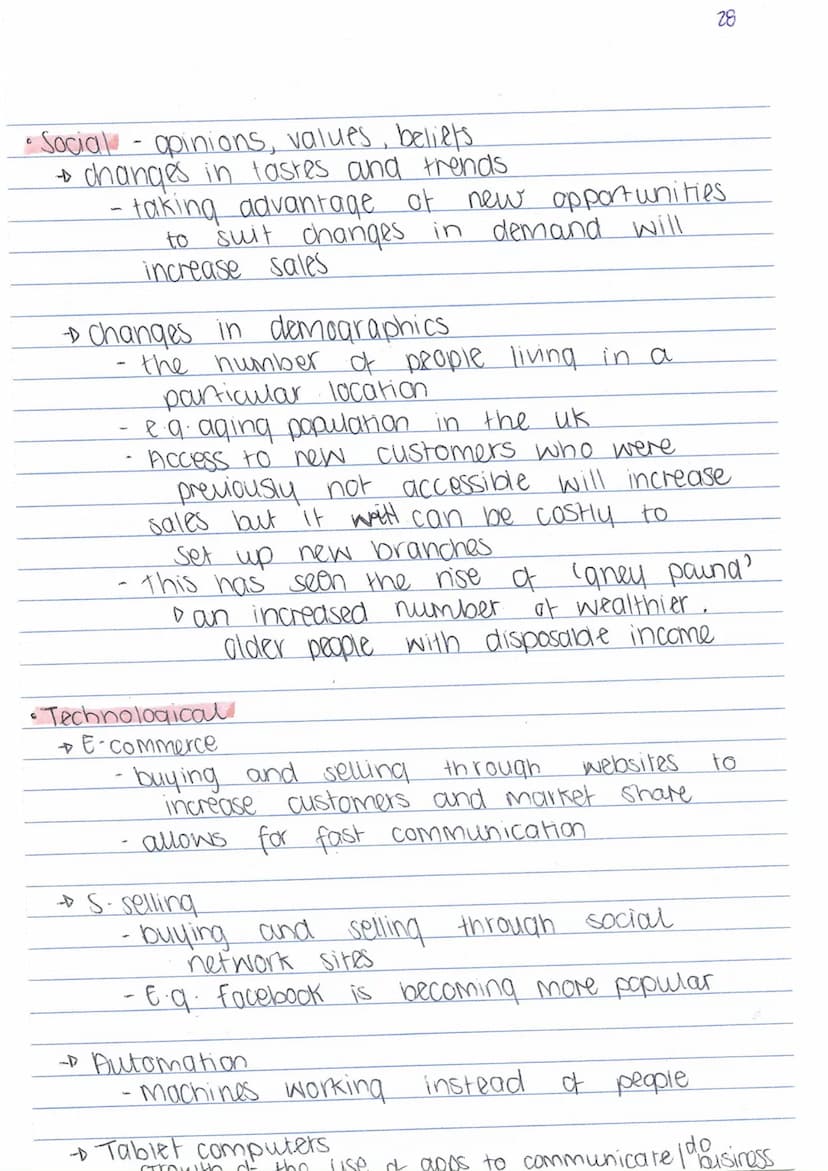 28
• Social - opinions, values, beliefs
→ changes in tastes and trends
- taking advantage of new opportunities
to suit changes in demand will
increase sales
→ changes in demographics
- the number of people living in a
particular location
- e.g. aging population in the UK
- Access to new customers who were
previously not accessible will increase
sales but it can be costly to
set up new branches
- this has seen the rise of 'grey pound'
→ an increased number of wealthier,
older people with disposable income
• Technological
→ E-commerce
- buying and selling through websites to
increase customers and market share
- allows for fast communication
→ S-selling
- buying and selling through social
network sites
- E.g. Facebook is becoming more popular
→ Automation
- Machines working instead of people
→ Tablet computers
growth of the use of apps to communicate/do business